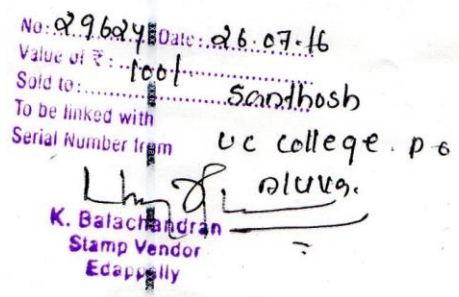 No: 29624 Date: 26.07.16
Value of ₹: 100/-
Sold to: Santhosh
To be linked with
Serial Number from UC College. P O
Aluva.
K. Balachandran
Stamp Vendor
Edappally